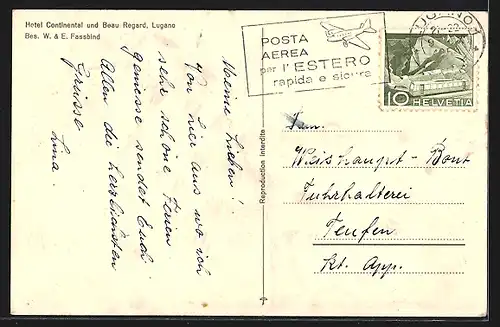 Hotel Continental und Beau Regard, Lugano
Bes. W. & E. Fassbind
Meine Lieben!
Von hier aus wo ich
sehr schöne Ferien
geniesse sendet Euch
Allen die herzlichsten
Grüsse
POSTA
AEREA
per l'ESTERO
rapida e sicura
LUGANO 1
10 HELVETIA
Reproduction interdite
Fam.
Weishaupt - Bont
Fuhrhalterei
Teufen
Kt. App.